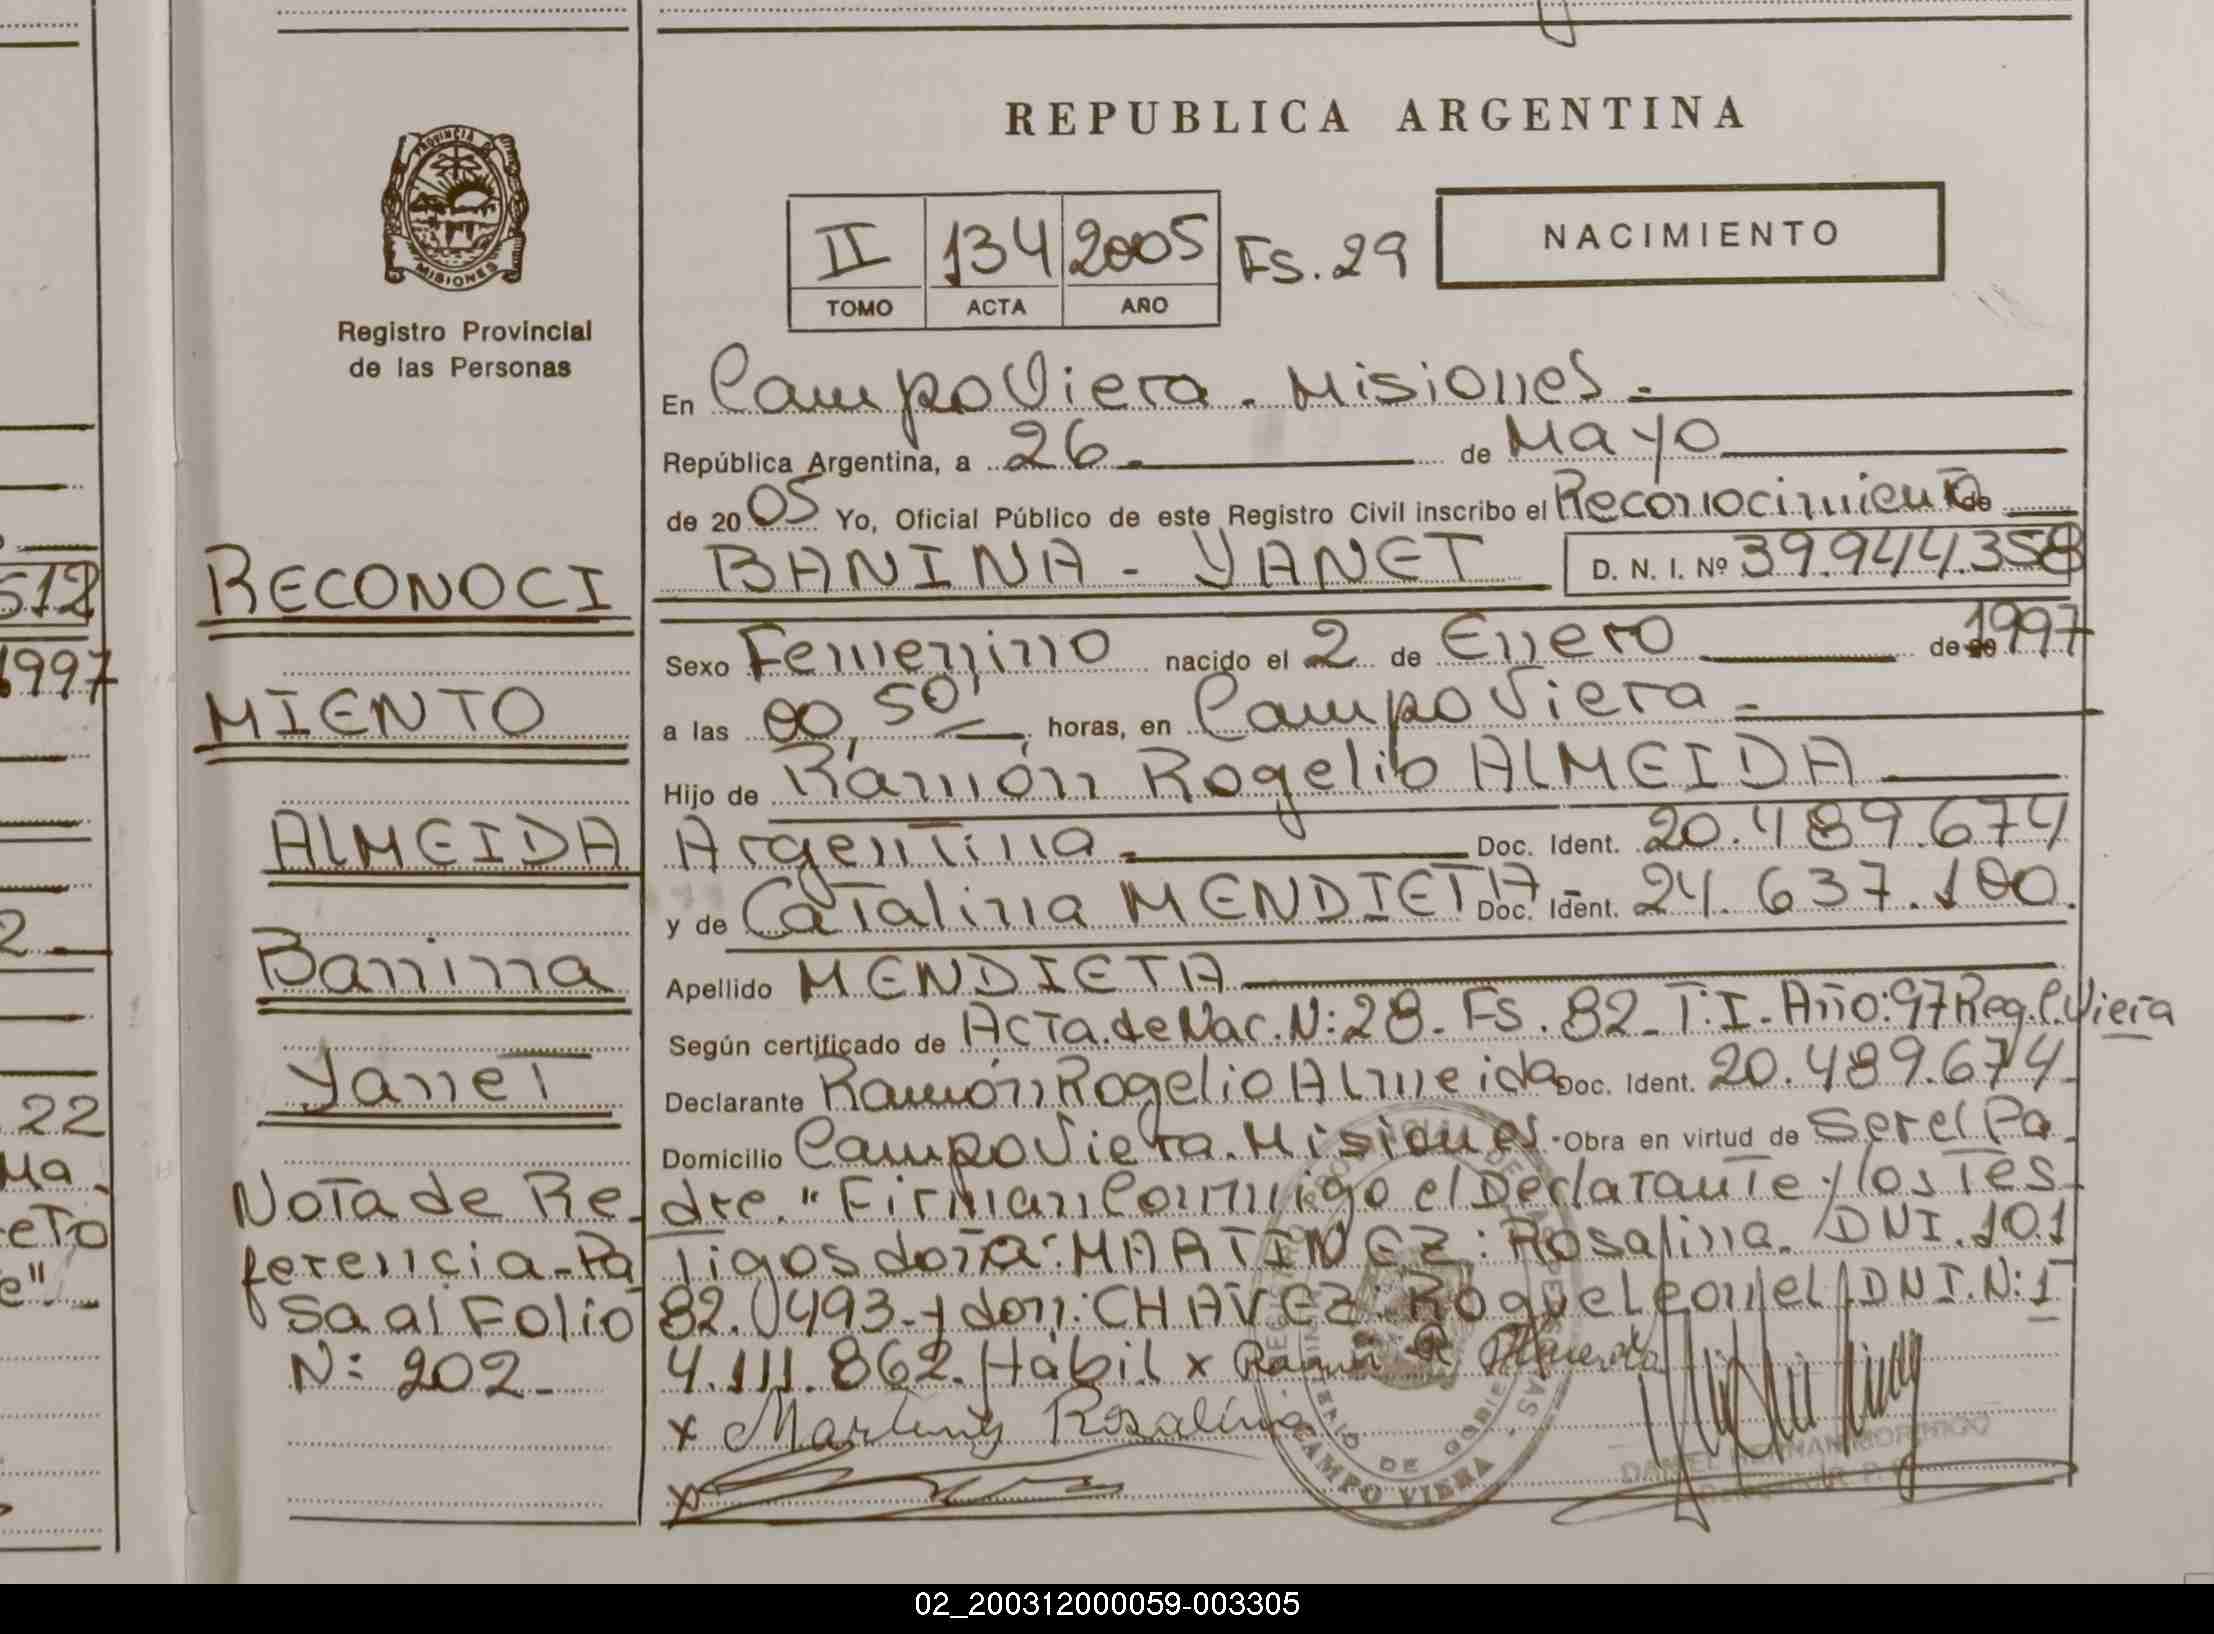 REPUBLICA ARGENTINA
PROVINCIA DE
MISIONES
Registro Provincial
de las Personas
II 134 2005 Fs. 29
TOMO ACTA AÑO
NACIMIENTO
En Campo Viera - Misiones -
República Argentina, a 26 - de Mayo
de 2005 Yo, Oficial Público de este Registro Civil inscribo el Reconocimiento de
BANINA - YANET D. N. I. Nº 39.944.358
Sexo Femenino nacido el 2 de Enero de 1997
a las 00,50' horas, en Campo Viera -
Hijo de Ramón Rogelio ALMEIDA
Argentina - Doc. Ident. 20.489.674
y de Catalina MENDIETA Doc. Ident. 24.637.100.
Apellido MENDIETA
Según certificado de Acta de Nac. N: 28 - Fs. 82 - T: I - Año: 97 Reg. C. Viera
Declarante Ramón Rogelio Almeida Doc. Ident. 20.489.674-
Domicilio Campo Viera. Misiones - Obra en virtud de ser el Pa-
dre. " Firman Conmigo el Declarante y los Tes-
tigos doña: MARTINEZ: Rosalina. DNI. 10.1
82.493 - y don: CHAVEZ: Roque Leonel DNI. N: 1
4.111.862. Hábil x Ramon R Almeida
x Martinez Rosalina
x
RECONOCI
MIENTO
ALMEIDA
Banina
Yanet
Nota de Re-
ferencia - Pa
sa al Folio
N: 202 -
CAMPO VIERA
512
1997
2
22
Ma
eto
e"
02_200312000059-003305